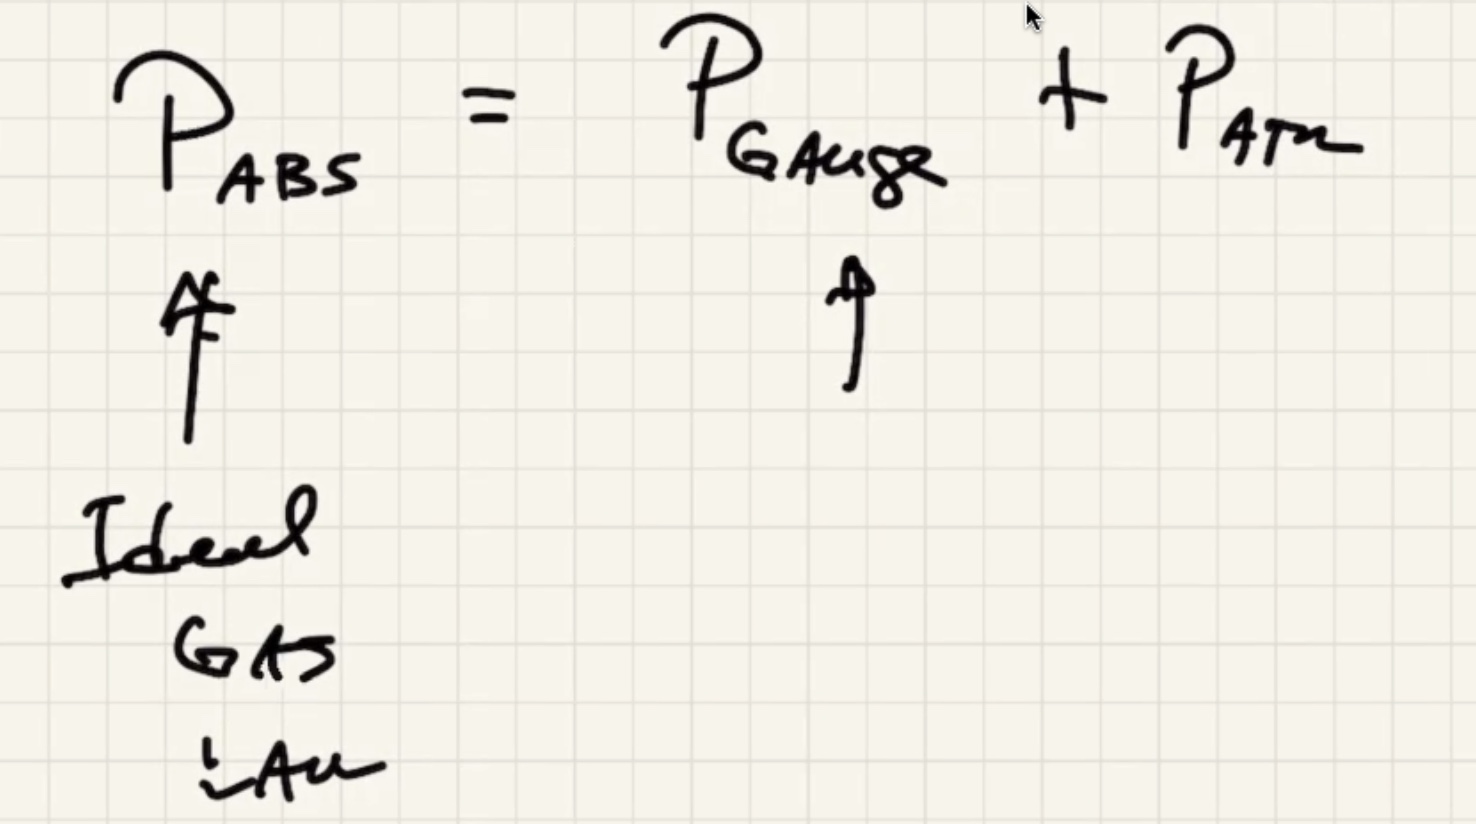 P ABS = P GAuge + P ATM
Ideal
GAS
LAW